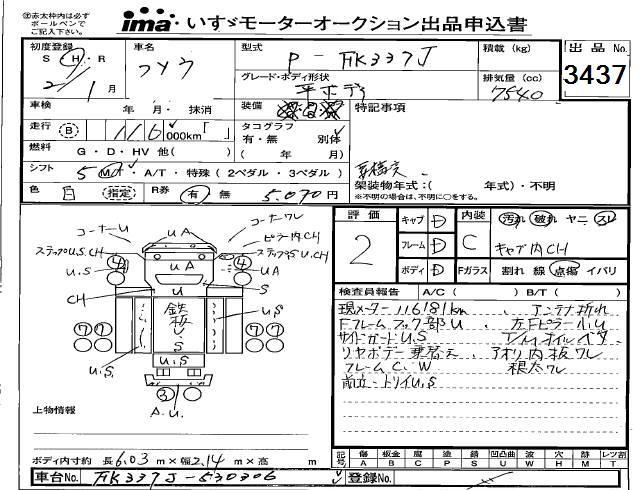 ※赤太枠内は必ず
ボールペンで
ご記入下さい。
ima いすゞモーターオークション出品申込書
初度登録
S・H・R
2/1月
車名
フソウ
型式
P-FK337J
積載(kg)
出品No.
3437
グレード・ボディ形状
平ボディ
排気量(cc)
7540
車検 年 月・抹消
装備
特記事項
走行 B 116,000km「 」
タコグラフ
有・無 別体
燃料 G・D・HV 他( )
( 年 月)
シフト 5 M/・A/T・特殊(2ペダル・3ペダル)
架装物年式:( 年式)・不明
※不明の場合は、不明に○をする。
色 白 指定 R券 有 無 5,070円
評価
2
キャブ D
フレーム D
ボディ D
内装
C
汚れ 破れ ヤニ スレ
キャブ内CH
Fガラス 割れ 線 点傷 イバリ
検査員報告 A/C( ) B/T( )
現メーター116181km、アンテナ折れ
Fフレームフック部U、左FピラーホU
サイドガードU,S
リヤボデー乗替え、アオリ内板ワレ
フレームC,W 根太ワレ
前立・トリイU,S
コーナーU
コーナーワレ
UA
ピラー内CH
ステップU,S,CH
ステップS,U,CH
4
4
U.S
UA
UA
CH
U
S
鉄板
U
S
U.S
7 7
7 7
U.S
U.S
3
A.U.
上物情報
ボディ内寸約 長6.03m×幅2.14m×高 m
記号 傷 A 板金 B 腐 C 塗 P 錆 S 凹凸曲 U 波 W 穴 H 跡 M レツ割 T
車台No. FK337J-530306
登録No.